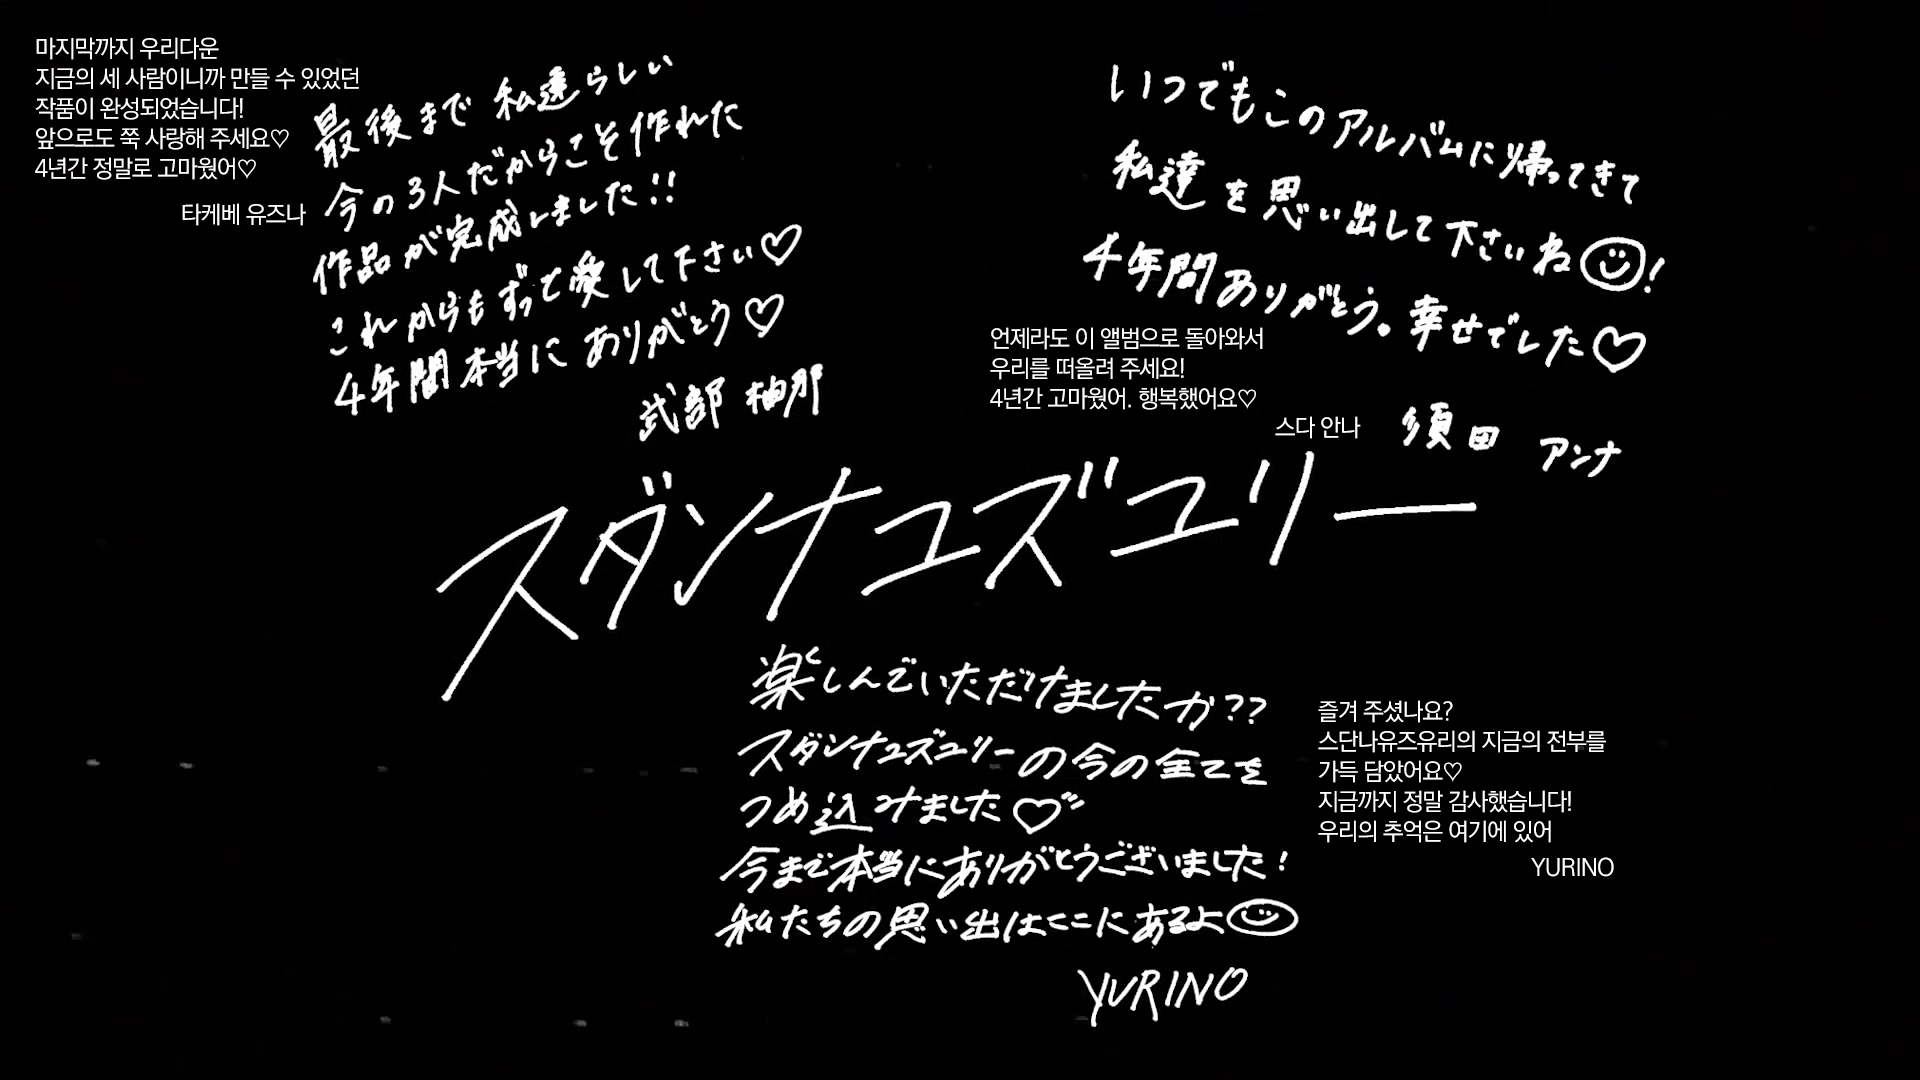 마지막까지 우리다운
지금의 세 사람이니까 만들 수 있었던
작품이 완성되었습니다!
앞으로도 쭉 사랑해 주세요♡
4년간 정말로 고마웠어♡
타케베 유즈나
最後まで私達らしい
今の3人だからこそ作れた
作品が完成しました!!
これからもずっと愛して下さい♡
4年間本当にありがとう♡
武部 柚那
いつでもこのアルバムに帰ってきて
私達を思い出して下さいね☺!
4年間ありがとう。幸せでした♡
須田 アンナ
언제라도 이 앨범으로 돌아와서
우리를 떠올려 주세요!
4년간 고마웠어. 행복했어요♡
스다 안나
スダンナユズユリー
楽しんでいただけましたか??
スダンナユズユリーの今の全てを
つめ込みました♡
今まで本当にありがとうございました!
私たちの思い出はここにあるよ☺
YURINO
즐겨 주셨나요?
스단나유즈유리의 지금의 전부를
가득 담았어요♡
지금까지 정말 감사했습니다!
우리의 추억은 여기에 있어
YURINO